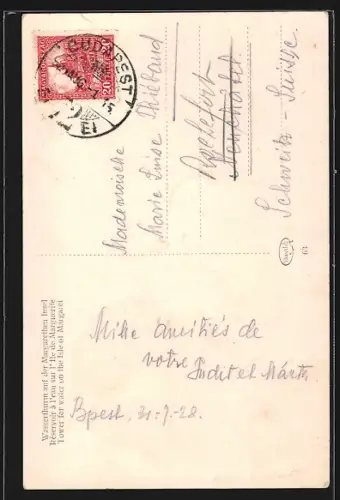 BUDAPEST
20
Mademoiselle
Marie Luise Thiébaud
Rochefort
Neuchâtel
Schweiz - Suisse
63
Wasserturm auf der Margarethen Insel
Réservoir à l'eau sur l'Ile de Marguerite
Tower for water on the Isle of Margaret
Mille amitiés de
votre
Judit et Márta
Bpest, 31-7-28.